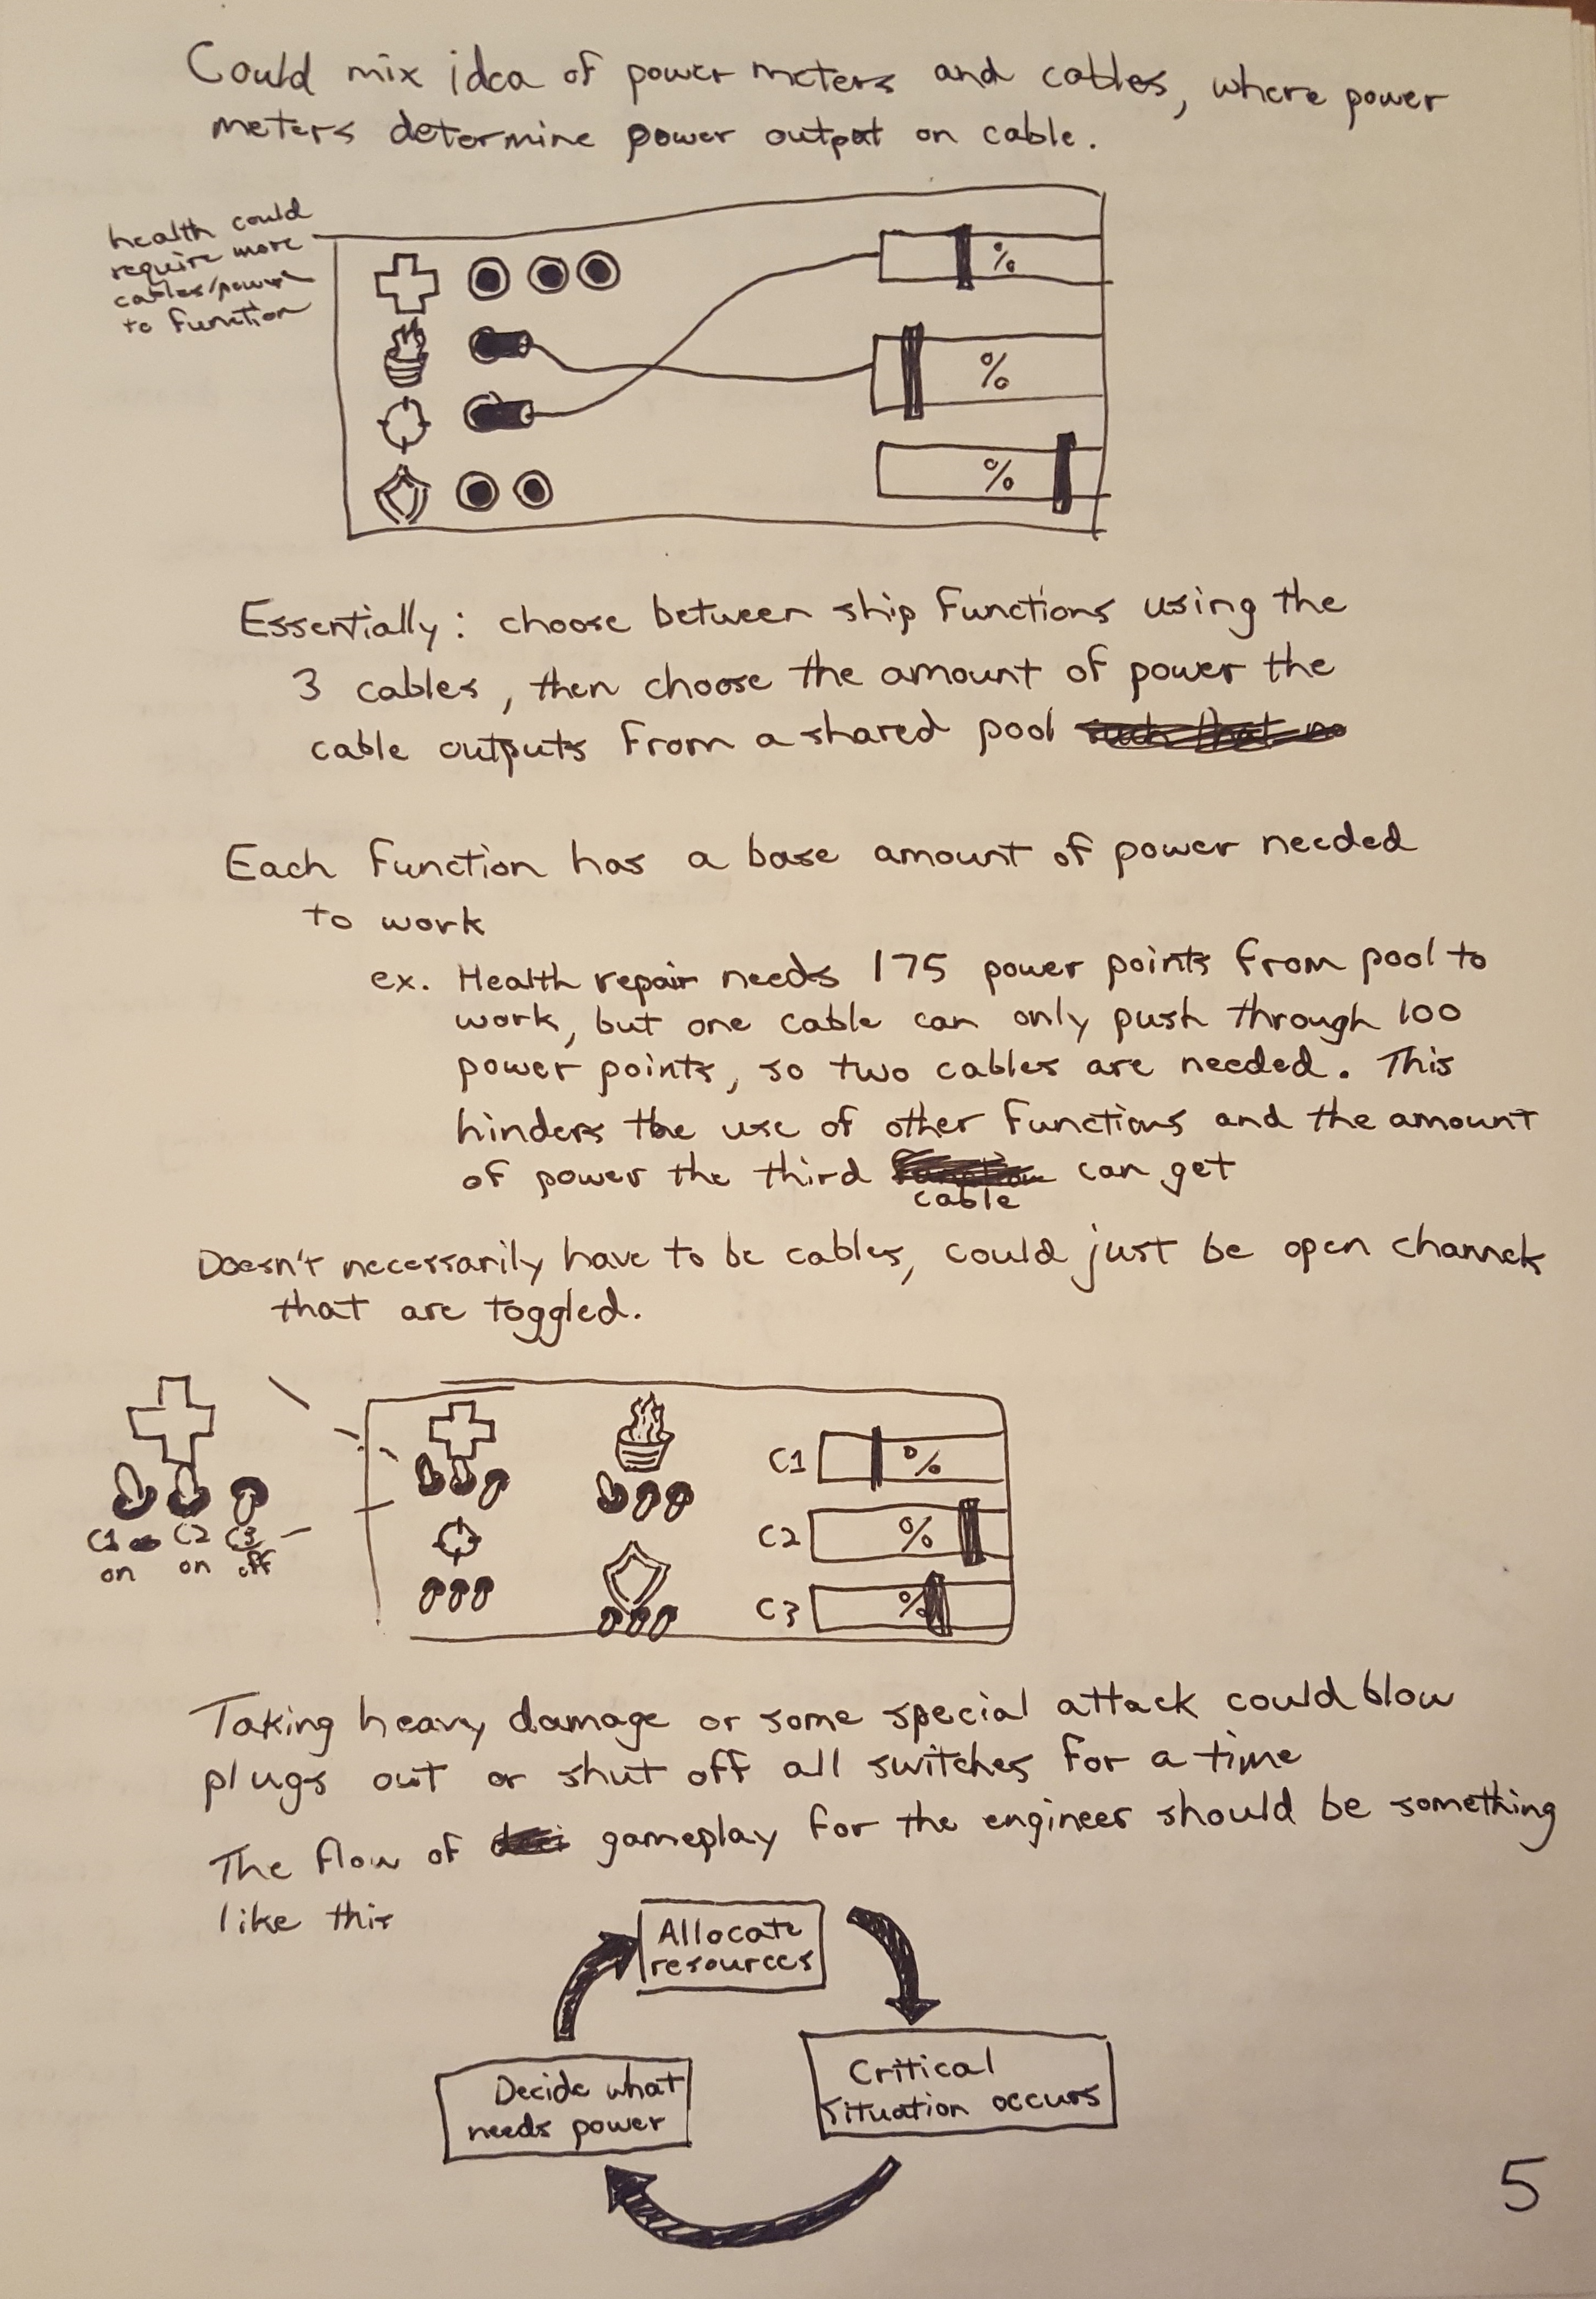 Could mix idea of power meters and cables, where power
meters determine power output on cable.
health could
require more
cables/power
to function
%
%
%
Essentially: choose between ship functions using the
3 cables, then choose the amount of power the
cable outputs from a shared pool such that no
Each function has a base amount of power needed
to work
ex. Health repair needs 175 power points from pool to
work, but one cable can only push through 100
power points, so two cables are needed. This
hinders the use of other functions and the amount
of power the third function can get
cable
Doesn't necessarily have to be cables, could just be open channels
that are toggled.
C1 C2 C3
on on off
C1 %
C2 %
C3 %
Taking heavy damage or some special attack could blow
plugs out or shut off all switches for a time
The flow of gameplay for the engineer should be something
like this
Allocate
resources
Critical
situation occurs
Decide what
needs power
5